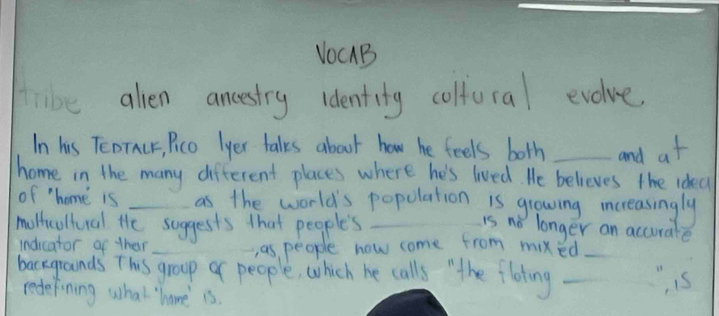 VOCAB
tribe alien ancestry identity cultural evolve.
In his TEDTALK, Pico Iyer talks about how he feels both ____ and at
home in the many different places where he's lived. He believes the idea
of "home" is ____ as the world's population is growing increasingly
multicultural He suggests that people's ____ is no longer an accurate
indicator of their ____, as people now come from mixed ____
backgrounds This group of people, which he calls "the floting ____", is
redefining what 'home' is.